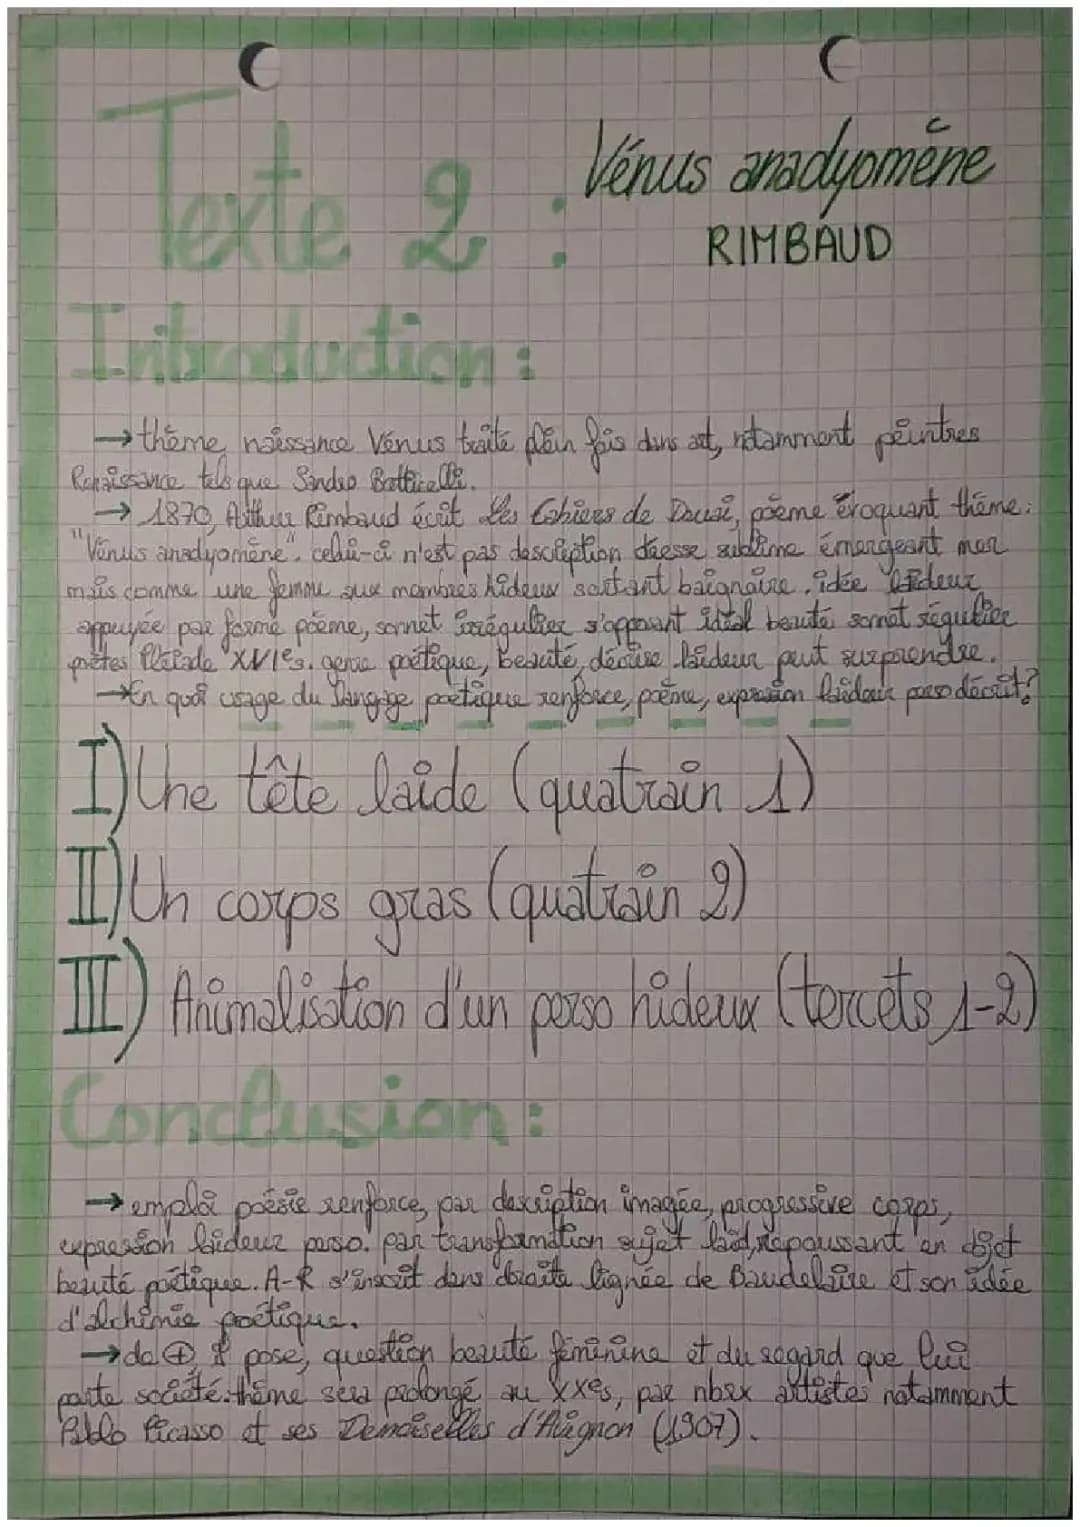 Texte 2 : Vénus anadyomène
RIMBAUD
Introduction :
→ thème, naissance Vénus traité plein fois dans art, notamment peintres
Renaissance tels que Sandro Botticelli.
→ 1870, Arthur Rimbaud écrit Les Cahiers de Douai, poème évoquant thème :
"Vénus anadyomène". celui-ci n'est pas description déesse sublime émergeant mer
mais comme une femme aux membres hideux sortant baignoire. idée laideur
appuyée par forme poème, sonnet irrégulier s'opposant idéal beauté sonnet régulier
poètes Pléiade XVIe s. genre poétique, beauté, décrire laideur peut surprendre.
→ En quoi usage du langage poétique renforce, poème, expression laideur perso décrit ?
I) Une tête laide (quatrain 1)
II) Un corps gras (quatrain 2)
III) Animalisation d'un perso hideux (tercets 1-2)
Conclusion :
→ emploi poésie renforce, par description imagée, progressive corps,
expression laideur perso. par transformation sujet laid, repoussant en objet
beauté poétique. A-R s'inscrit dans droite lignée de Baudelaire et son idée
d'alchimie poétique.
→ de ⊕, pose, question beauté féminine et du regard que lui
porte société. thème sera prolongé au XXe s, par nbrx artistes notamment
Pablo Picasso et ses Demoiselles d'Avignon (1907).